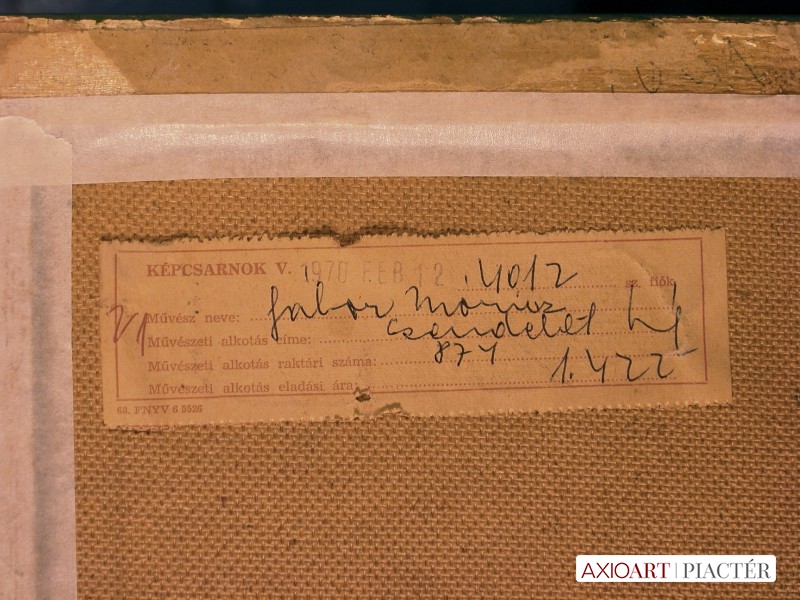 KÉPCSARNOK V. 1970 FEB 12 4012 sz. fiók
Művész neve: Gabor Moricz
Művészeti alkotás címe: Csendélet
Művészeti alkotás raktári száma: 871
Művészeti alkotás eladási ára: 1.422
68. FNYV 6 5526
AXIOART | PIACTÉR